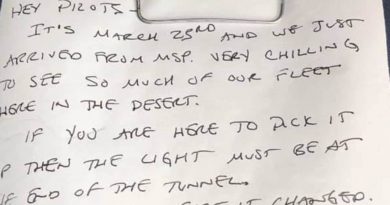 HEY PILOTS-
IT'S MARCH 23RD AND WE JUST
ARRIVED FROM MSP. VERY CHILLING
TO SEE SO MUCH OF OUR FLEET
HERE IN THE DESERT.
IF YOU ARE HERE TO PICK IT
P THEN THE LIGHT MUST BE AT
END OF THE TUNNEL.
IT CHANGED.